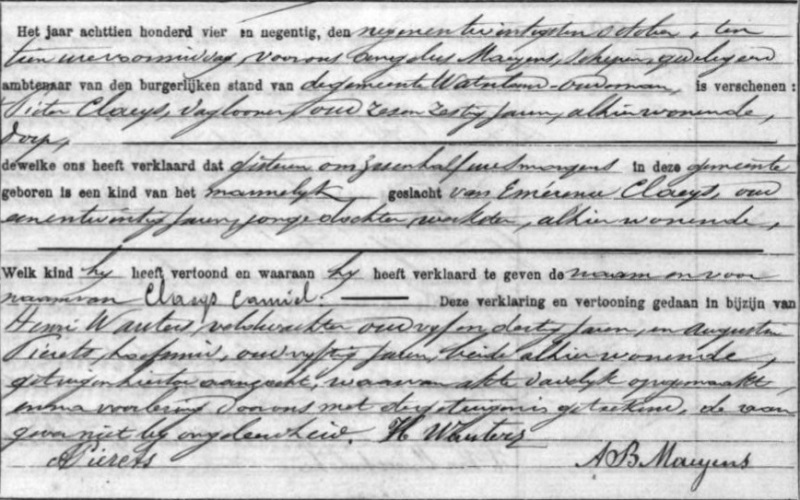 Het jaar achttien honderd vier en negentig, den negenentwintigsten october, ten
tien ure voormiddag, voor ons Maeyens, schepen, gedelegeerd
ambtenaar van den burgerlijken stand van de gemeente Waterland-Oudeman, is verschenen:
Pieter Claeys, daglooner, oud zesenzestig jaren, alhier wonende,
dorp,
dewelke ons heeft verklaard dat gisteren om half ure smorgens in deze gemeente
geboren is een kind van het mannelijk geslacht van Emérence Claeys, oud
eenentwintig jaren, jonge dochter, werkster, alhier wonende,
Welk kind hy heeft vertoond en waaraan hy heeft verklaard te geven de naam en voor
naam van Claeys Camiel. Deze verklaring en vertooning gedaan in bijzijn van
Henri Wauters, veldwachter oud vyf en dertig jaren, en Augustin
Piérets, hoefsmid, oud vyftig jaren, beide alhier wonende,
getuigen hiertoe aanzocht, waarvan akte dadelyk opgemaakt
en na voorlezing door ons met de getuigen is geteekend, de aan
gever niet by ongeleerdheid. H Wauters
A Piérets A B Maeyens